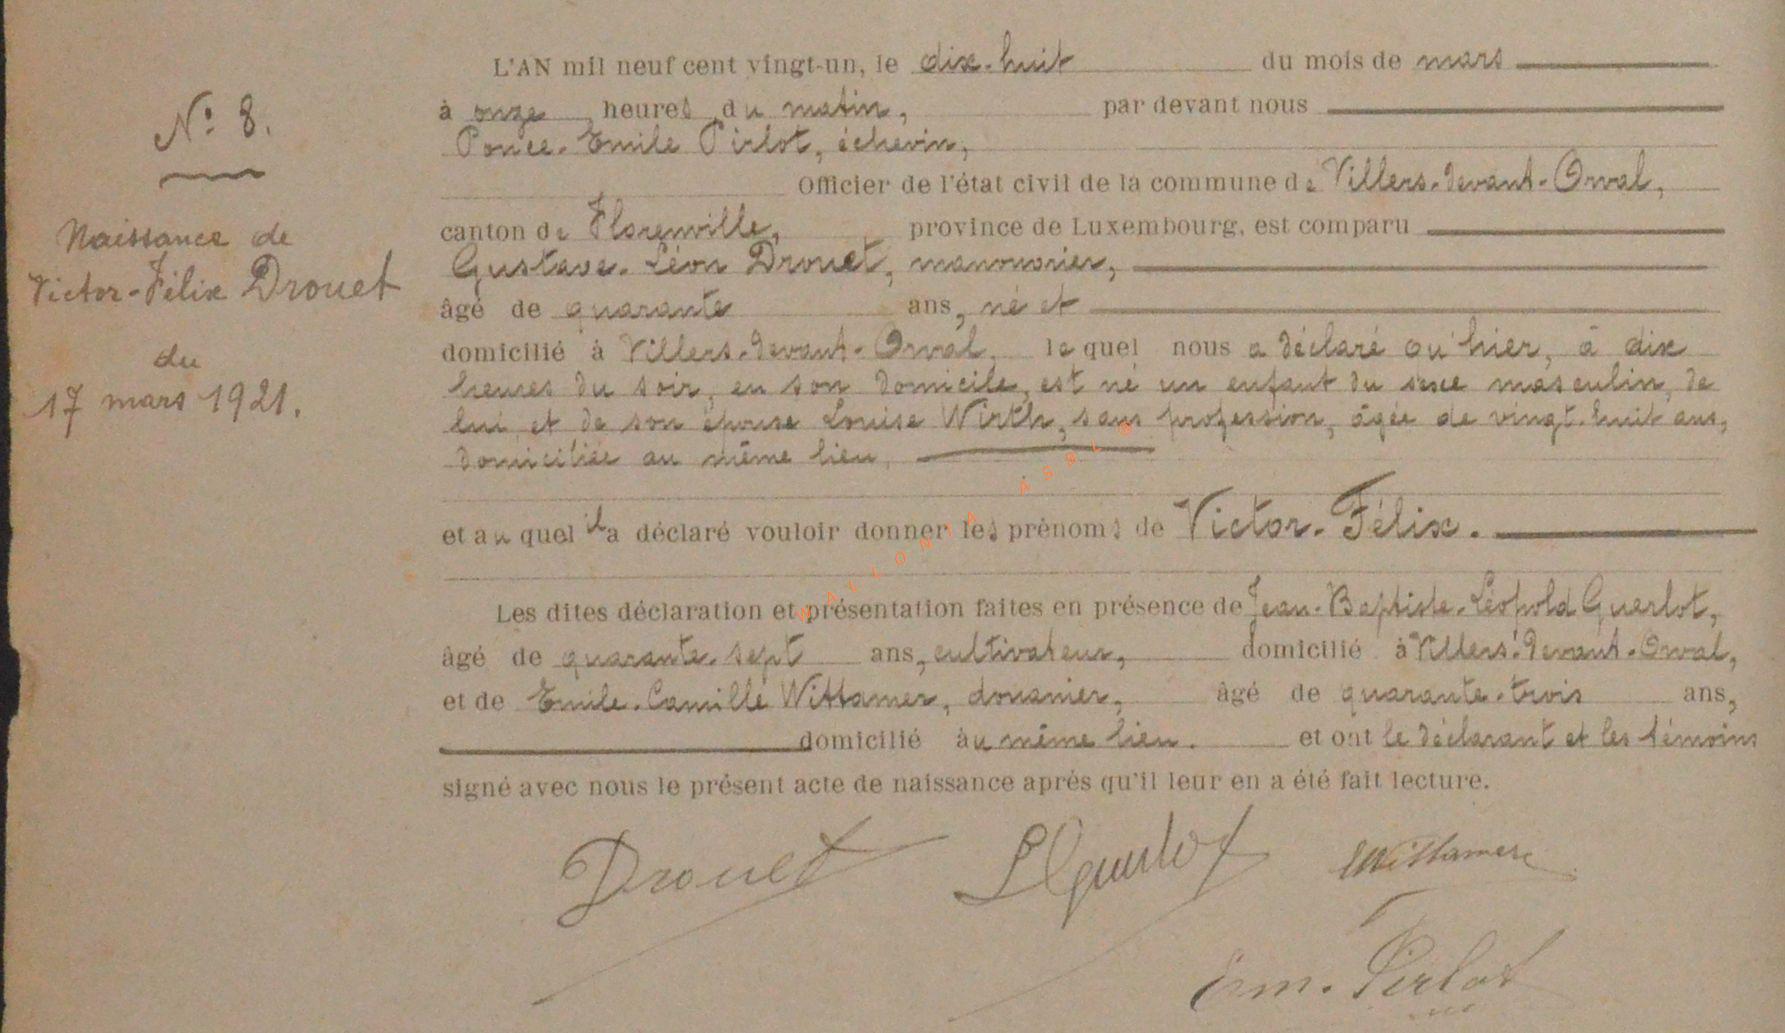 N° 8.
Naissance de
Victor-Félix Drouet
du
17 mars 1921.
L'AN mil neuf cent vingt-un, le dix-huit du mois de mars
à onze heures du matin, par devant nous
Ponce-Emile Pirlot, échevin,
Officier de l'état civil de la commune de Villers-devant-Orval,
canton de Florenville, province de Luxembourg, est comparu
Gustave-Léon Drouet, manouvrier,
âgé de quarante ans, né et
domicilié à Villers-devant-Orval, lequel nous a déclaré qu'hier, à dix
heures du soir, en son domicile, est né un enfant du sexe masculin, de
lui et de son épouse Louise Wirth, sans profession, âgée de vingt-huit ans,
domiciliée au même lieu,
et auquel il a déclaré vouloir donner les prénoms de Victor-Félix.
Les dites déclaration et présentation faites en présence de Jean-Baptiste-Léopold Guerlot,
âgé de quarante-sept ans, cultivateur, domicilié à Villers-devant-Orval,
et de Emile-Camille Wittamer, douanier, âgé de quarante-trois ans,
domicilié au même lieu. et ont le déclarant et les témoins
signé avec nous le présent acte de naissance après qu'il leur en a été fait lecture.
Drouet LGuerlot Wittamer
Em. Pirlot
WALLONIA ASBL